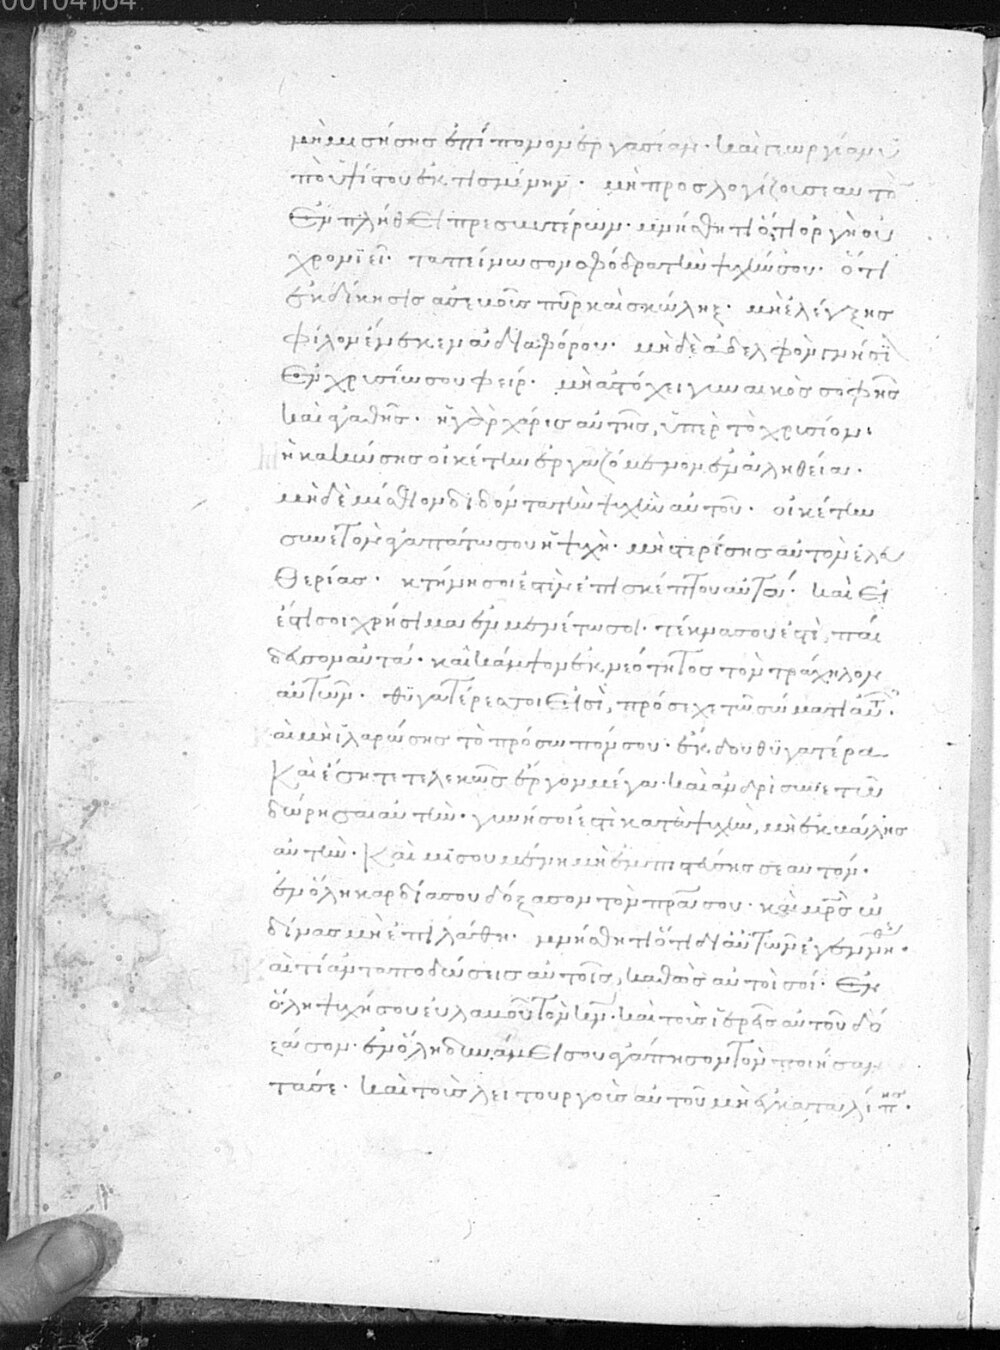 00104164
μὴ μισήσης ἐπίπονον ἐργασίαν· καὶ γεωργίαν ὑ
πὸ ὑψίστου ἐκτισμένην· μὴ προσλογίζου σεαυτὸν
ἐν πλήθει πρεσβυτέρων· μνήσθητι ὅτι ὀργὴ οὐ
χρονιεῖ· ταπείνωσον σφόδρα τὴν ψυχήν σου· ὅτι
ἐκδίκησις ἀσεβοῦς πῦρ καὶ σκώληξ· μὴ ἐλέγξης
φίλον ἕνεκεν ἀδιαφόρου· μηδὲ ἀδελφὸν γνήσι
ἐν χρυσίω σουφείρ· μὴ ἀστόχει γυναικὸς σοφῆς
καὶ ἀγαθῆς· ἡ γὰρ χάρις αὐτῆς, ὑπὲρ τὸ χρυσίον·
μὴ κακώσης οἰκέτην ἐργαζόμενον ἐν ἀληθεία·
μηδὲ μίσθιον διδόντα τὴν ψυχὴν αὐτοῦ· οἰκέτην
συνετὸν ἀγαπάτω σου ἡ ψυχὴ· μὴ στερίσης αὐτὸν ἐλευ
θερίας· κτήνη σοι ἐστὶν ἐπισκέπτου αὐτά· καὶ εἰ
ἔστι σοι χρήσιμα ἐμμενέτω σοι· τέκνα σου ἐστὶ, παί
δευσον αὐτά· καὶ κάμψον ἐκ νεότητος τὸν τράχηλον
αὐτῶν· θυγατέρες σοι εἰσὶ, πρόσεχε τῶ σώματι αὐτῶν·
καὶ μὴ ἱλαρώσης τὸ πρόσωπόν σου· ἔκδου θυγατέρα
Καὶ ἔση τετελεκὼς ἔργον μέγα· καὶ ἀνδρὶ συνετῶ
δώρησαι αὐτήν· γυνή σοι ἐστὶ κατὰ ψυχὴν, μὴ ἐκβάλης
αὐτήν· Καὶ μισουμένη μὴ ἐμπιστεύσης σεαυτόν·
ἐν ὅλη καρδία σου δόξασον τὸν πρα σου· καὶ μρς ὠ
δίνας μὴ ἐπιλάθη· μνήσθητι ὅτι δι' αὐτῶν ἐγεννήθης·
καὶ τί ἀνταποδώσεις αὐτοῖς, καθὼς αὐτοὶ σοί· Ἐν
ὅλη ψυχῆ σου εὐλαβοῦ τὸν κν· καὶ τοὺς ἱερεῖς αὐτοῦ δό
ξασον· ἐν ὅλη δυνάμει σου ἀγάπησον τὸν ποιήσαν
τά σε· καὶ τοὺς λειτουργοὺς αὐτοῦ μὴ ἐγκαταλίπης·